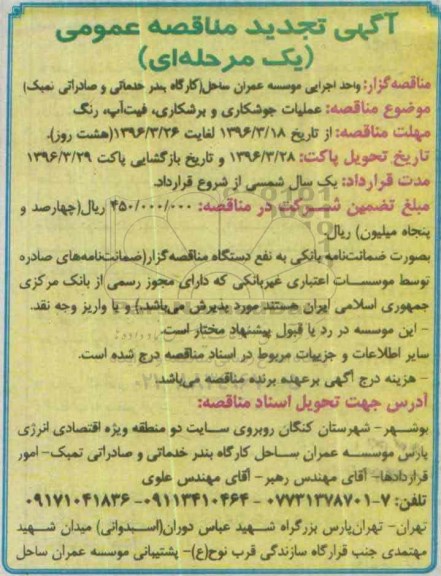 آگهی تجدید مناقصه عمومی
(یک مرحله‌ای)
مناقصه‌گزار: واحد اجرایی موسسه عمران ساحل(کارگاه بندر خدماتی و صادراتی تمبک)
موضوع مناقصه: عملیات جوشکاری و برشکاری، فیت‌آپ، رنگ
مهلت مناقصه: از تاریخ ۱۳۹۶/۳/۱۸ لغایت ۱۳۹۶/۳/۲۶(هشت روز).
تاریخ تحویل پاکت: ۱۳۹۶/۳/۲۸ و تاریخ بازگشایی پاکت ۱۳۹۶/۳/۲۹
مدت قرارداد: یک سال شمسی از شروع قرارداد.
مبلغ تضمین شرکت در مناقصه: ۴۵۰/۰۰۰/۰۰۰ ریال(چهارصد و
پنجاه میلیون) ریال.
بصورت ضمانت‌نامه بانکی به نفع دستگاه مناقصه‌گزار(ضمانت‌نامه‌های صادره
توسط موسسات اعتباری غیربانکی که دارای مجوز رسمی از بانک مرکزی
جمهوری اسلامی ایران هستند مورد پذیرش می‌باشد.) و یا واریز وجه نقد.
- این موسسه در رد یا قبول پیشنهاد مختار است.
سایر اطلاعات و جزییات مربوط در اسناد مناقصه درج شده است.
- هزینه درج آگهی برعهده برنده مناقصه می‌باشد.
آدرس جهت تحویل اسناد مناقصه:
بوشهر- شهرستان کنگان روبروی سایت دو منطقه ویژه اقتصادی انرژی
پارس موسسه عمران ساحل کارگاه بندر خدماتی و صادراتی تمبک- امور
قراردادها- آقای مهندس رهبر- آقای مهندس علوی
تلفن: ۷-۰۷۷۳۱۳۷۸۷۰۱ - ۰۹۱۱۳۴۱۰۴۶۴- ۰۹۱۷۱۰۴۱۸۳۶
تهران- تهران‌پارس بزرگراه شهید عباس دوران(اسبدوانی) میدان شهید
مهتمدی جنب قرارگاه سازندگی قرب نوح(ع)- پشتیبانی موسسه عمران ساحل